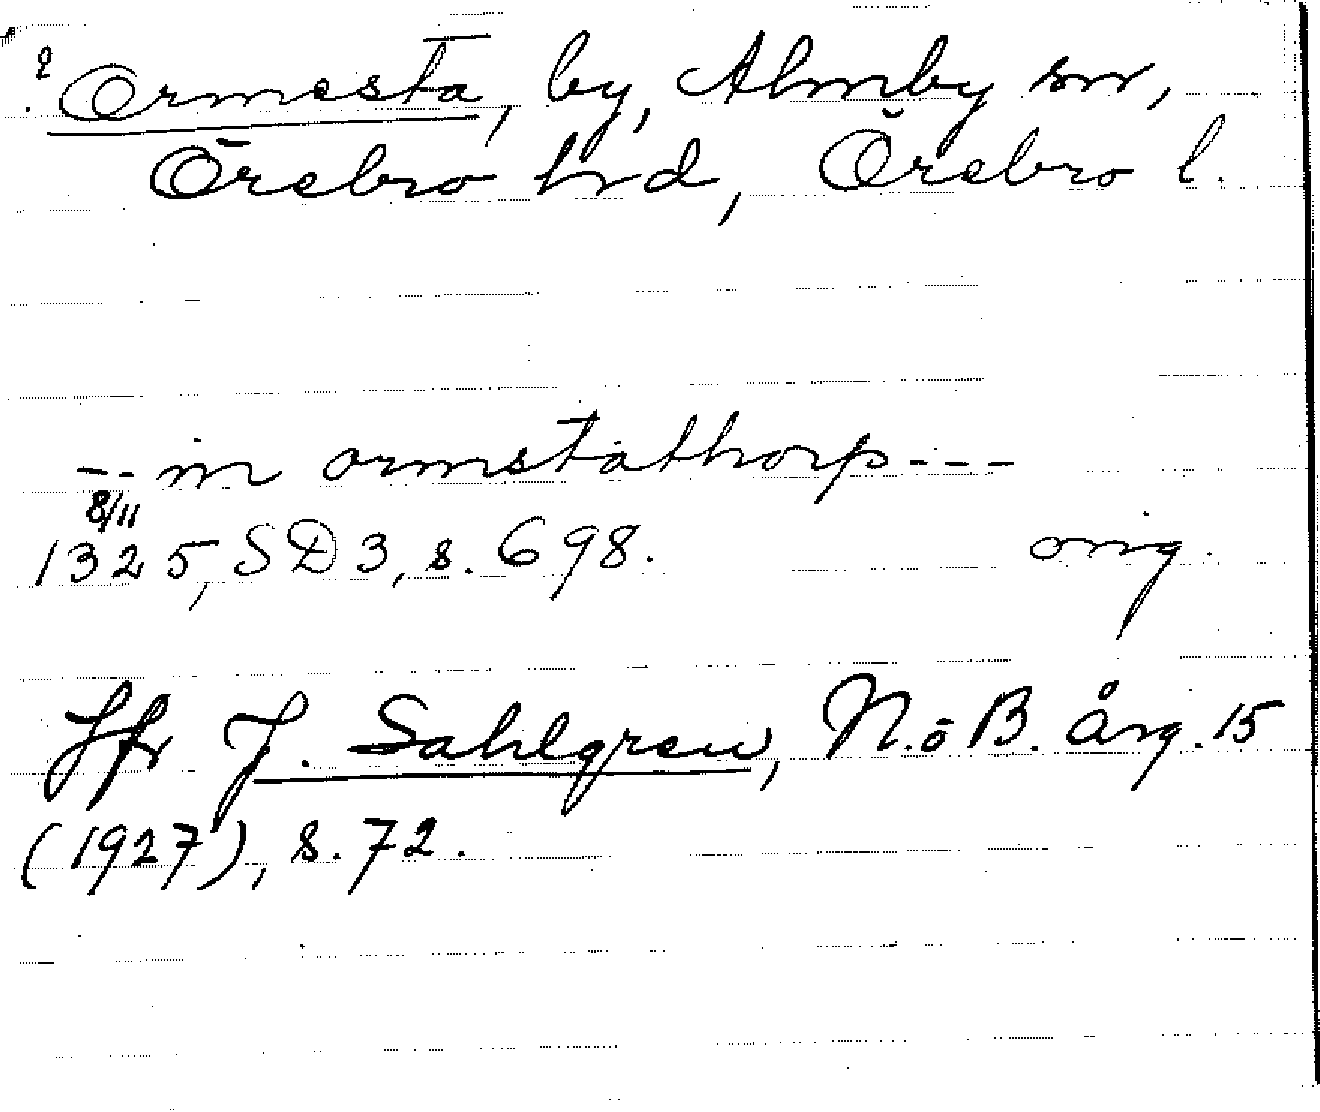 ? Ormesta, by, Almby sn,
Örebro hrd, Örebro l.
-- in ormstathorp ---
8/11
1325, SD 3, s. 698. orig.
Jfr J. Sahlgren, N.o B. årg. 15
(1927), s. 72.